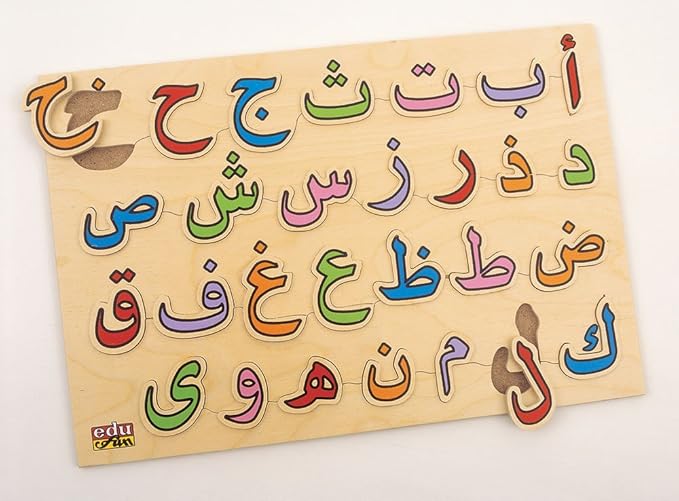 أ ب ت ث ج ح خ
د ذ ر ز س ش ص
ض ط ظ ع غ ف ق
ك ل م ن ه و ى
edu
fun